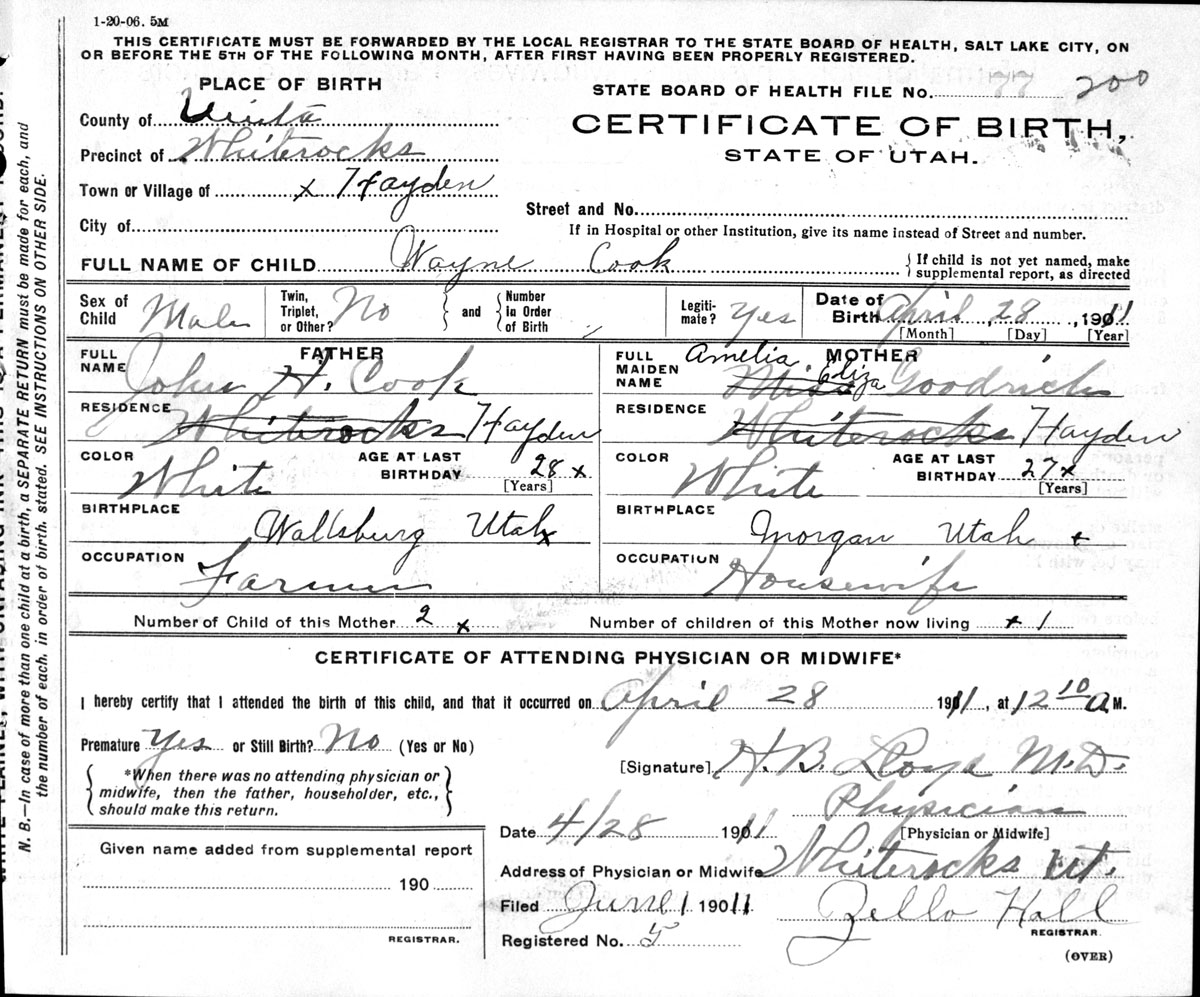 1-20-06. 5M
THIS CERTIFICATE MUST BE FORWARDED BY THE LOCAL REGISTRAR TO THE STATE BOARD OF HEALTH, SALT LAKE CITY, ON
OR BEFORE THE 5TH OF THE FOLLOWING MONTH, AFTER FIRST HAVING BEEN PROPERLY REGISTERED.
PLACE OF BIRTH
STATE BOARD OF HEALTH FILE No. 77 200
County of Uinta
CERTIFICATE OF BIRTH,
Precinct of Whiterocks
STATE OF UTAH.
Town or Village of x Hayden
Street and No.
City of
If in Hospital or other Institution, give its name instead of Street and number.
FULL NAME OF CHILD Wayne Cook { If child is not yet named, make
supplemental report, as directed
Sex of Child Male Twin, Triplet, or Other? No } and { Number in Order of Birth / Legiti-mate? Yes Date of Birth April 28, 1911
[Month] [Day] [Year]
FATHER
FULL NAME John H. Cook
RESIDENCE Whiterocks Hayden
COLOR White AGE AT LAST BIRTHDAY 28 x
[Years]
BIRTHPLACE Wallsburg Utah x
OCCUPATION Farmer
MOTHER
FULL MAIDEN NAME Amelia Eliza Goodrich
RESIDENCE Whiterocks Hayden
COLOR White AGE AT LAST BIRTHDAY 27 x
[Years]
BIRTHPLACE Morgan Utah +
OCCUPATION Housewife
Number of Child of this Mother 2 x Number of children of this Mother now living + 1
CERTIFICATE OF ATTENDING PHYSICIAN OR MIDWIFE*
I hereby certify that I attended the birth of this child, and that it occurred on April 28 1911, at 12 10 A.M.
Premature Yes or Still Birth? No (Yes or No)
{ *When there was no attending physician or
midwife, then the father, householder, etc.,
should make this return. }
[Signature] H. B. Lloyd M.D.
Physician
[Physician or Midwife]
Date 4/28 1911
Address of Physician or Midwife Whiterocks Ut.
Filed June 1 1911 Zello Hall
REGISTRAR.
Registered No. 5
(OVER)
Given name added from supplemental report
190
REGISTRAR.
N. B.—In case of more than one child at a birth, a SEPARATE RETURN must be made for each, and
the number of each, in order of birth, stated. SEE INSTRUCTIONS ON OTHER SIDE.